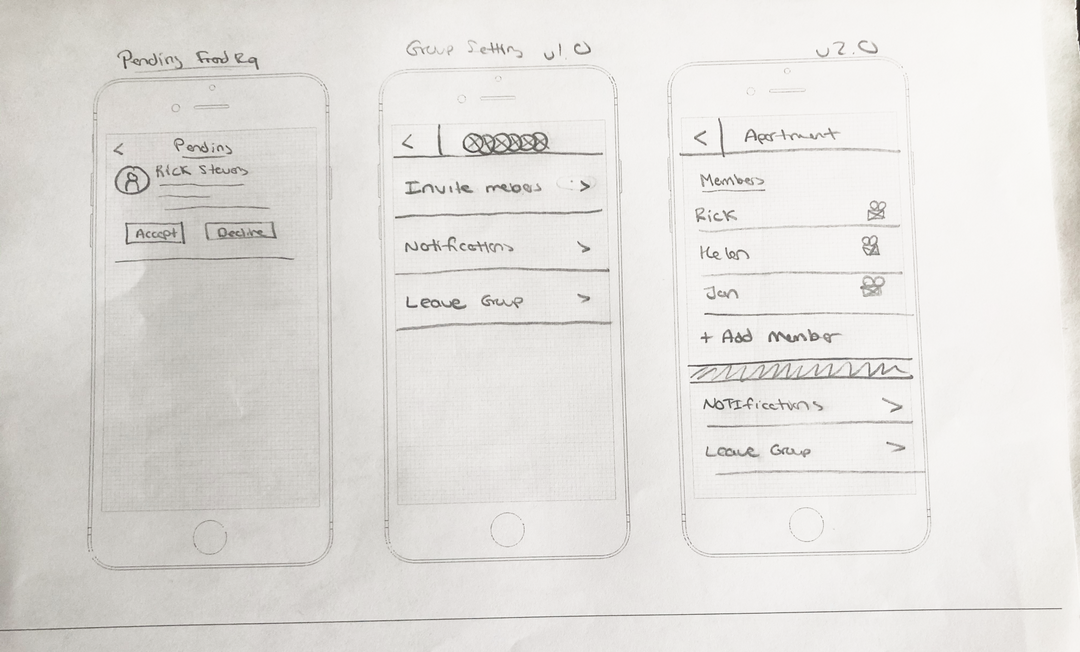 Pending Frnd Rq
<
Pending
Rick Stevens
Accept
Decline
Group Setting v1.0
<
Invite mebers >
Notifications >
Leave Group >
v2.0
< Apartment
Members
Rick
Helen
Jan
+ Add Member
NOTIfications >
Leave Group >